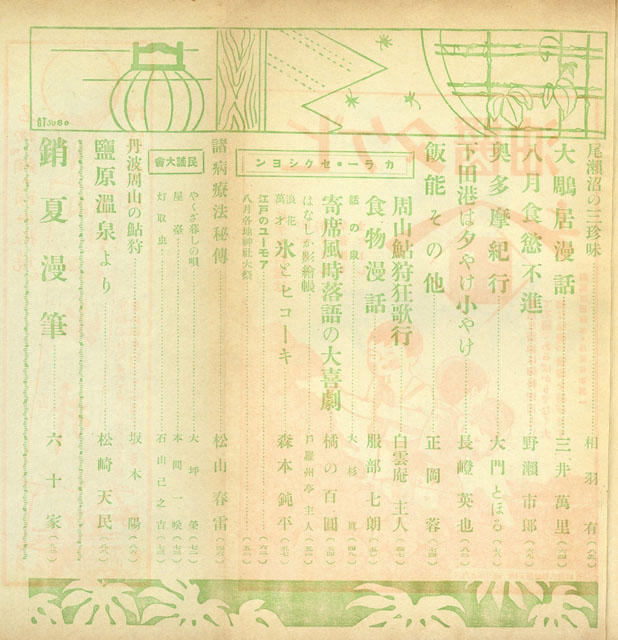 尾瀬沼の三珍味 相羽有
大鵬居漫話 三井萬里
八月食慾不進 野瀬市郎
奥多摩紀行 大門とほる
下田港は夕やけ小やけ 長嶝英也
飯能その他 正岡蓉
カラー・セクシヨン
周山鮎狩狂歌行 白雲庵主人
食物漫話 服部七朗
話の泉 大杉
寄席風時落語の大喜劇 橘の百圓
はなしか影繪帳 戸羅州亭主人
浪花萬才 氷とヒコーキ 森本鈍平
江戸のユーモア
八月各地神社大祭
諸病療法秘傳 松山春雷
民謠大會
やくざ暮しの唄 大坪榮
屋臺 本間一
灯取虫 石山已之吉
丹波周山の鮎狩 坂本陽
鹽原溫泉より 松崎天民
銷夏漫筆 六十家